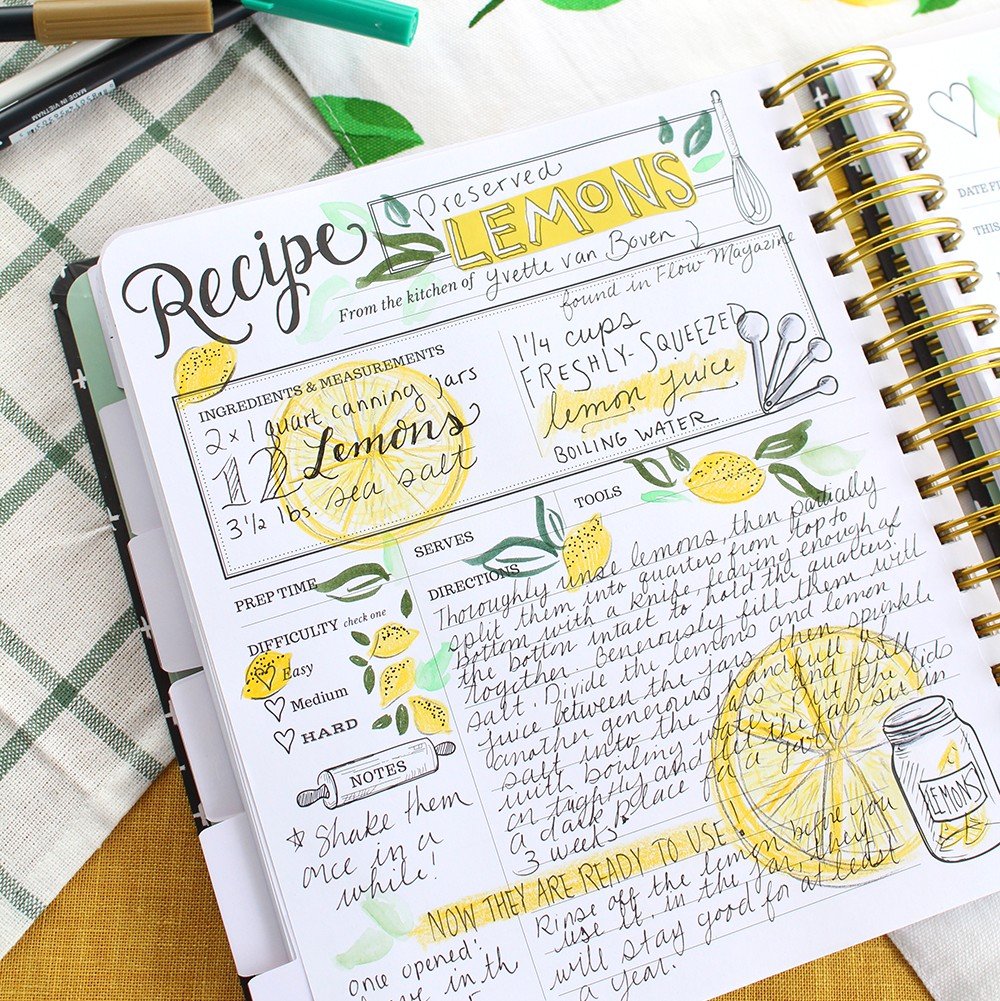 MADE IN VIETNAM
Recipe
Preserved
LEMONS
From the kitchen of Yvette van Boven
found in Flow Magazine
INGREDIENTS & MEASUREMENTS
2 x 1 quart canning jars
12 Lemons
3 1/2 lbs. sea salt
1 1/4 cups
FRESHLY-SQUEEZED
lemon juice
BOILING WATER
PREP TIME
SERVES
TOOLS
DIFFICULTY check one
Easy
Medium
HARD
NOTES
* Shake them
once in a
while!
once opened:
DIRECTIONS
Thoroughly rinse lemons, then partially
split them into quarters from top to
bottom with a knife, leaving enough of
the botton intact to hold the quarters
together. Generously fill them will
salt. Divide the lemons and lemon
juice between the jars, then sprinkle
another generous handfull of
salt into the jars and fill
with bouling water. Put the lids
on tightly and let the jars sit in
a dark place for a
3 weeks.
LEMONS!
NOW THEY ARE READY TO USE
Rinse off the lemon before you
use it. in the jar, they
will stay good for at least
a year.
DATE FI
THIS